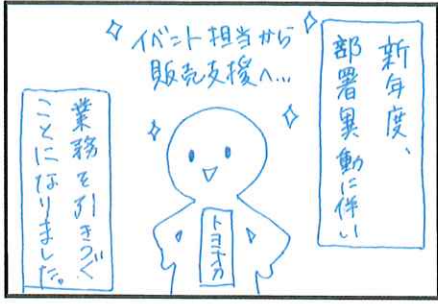 新年度、
部署異動に伴い
イベント担当から
販売支援へ…
トヨオカ
業務を引きつぐ
ことになりました。